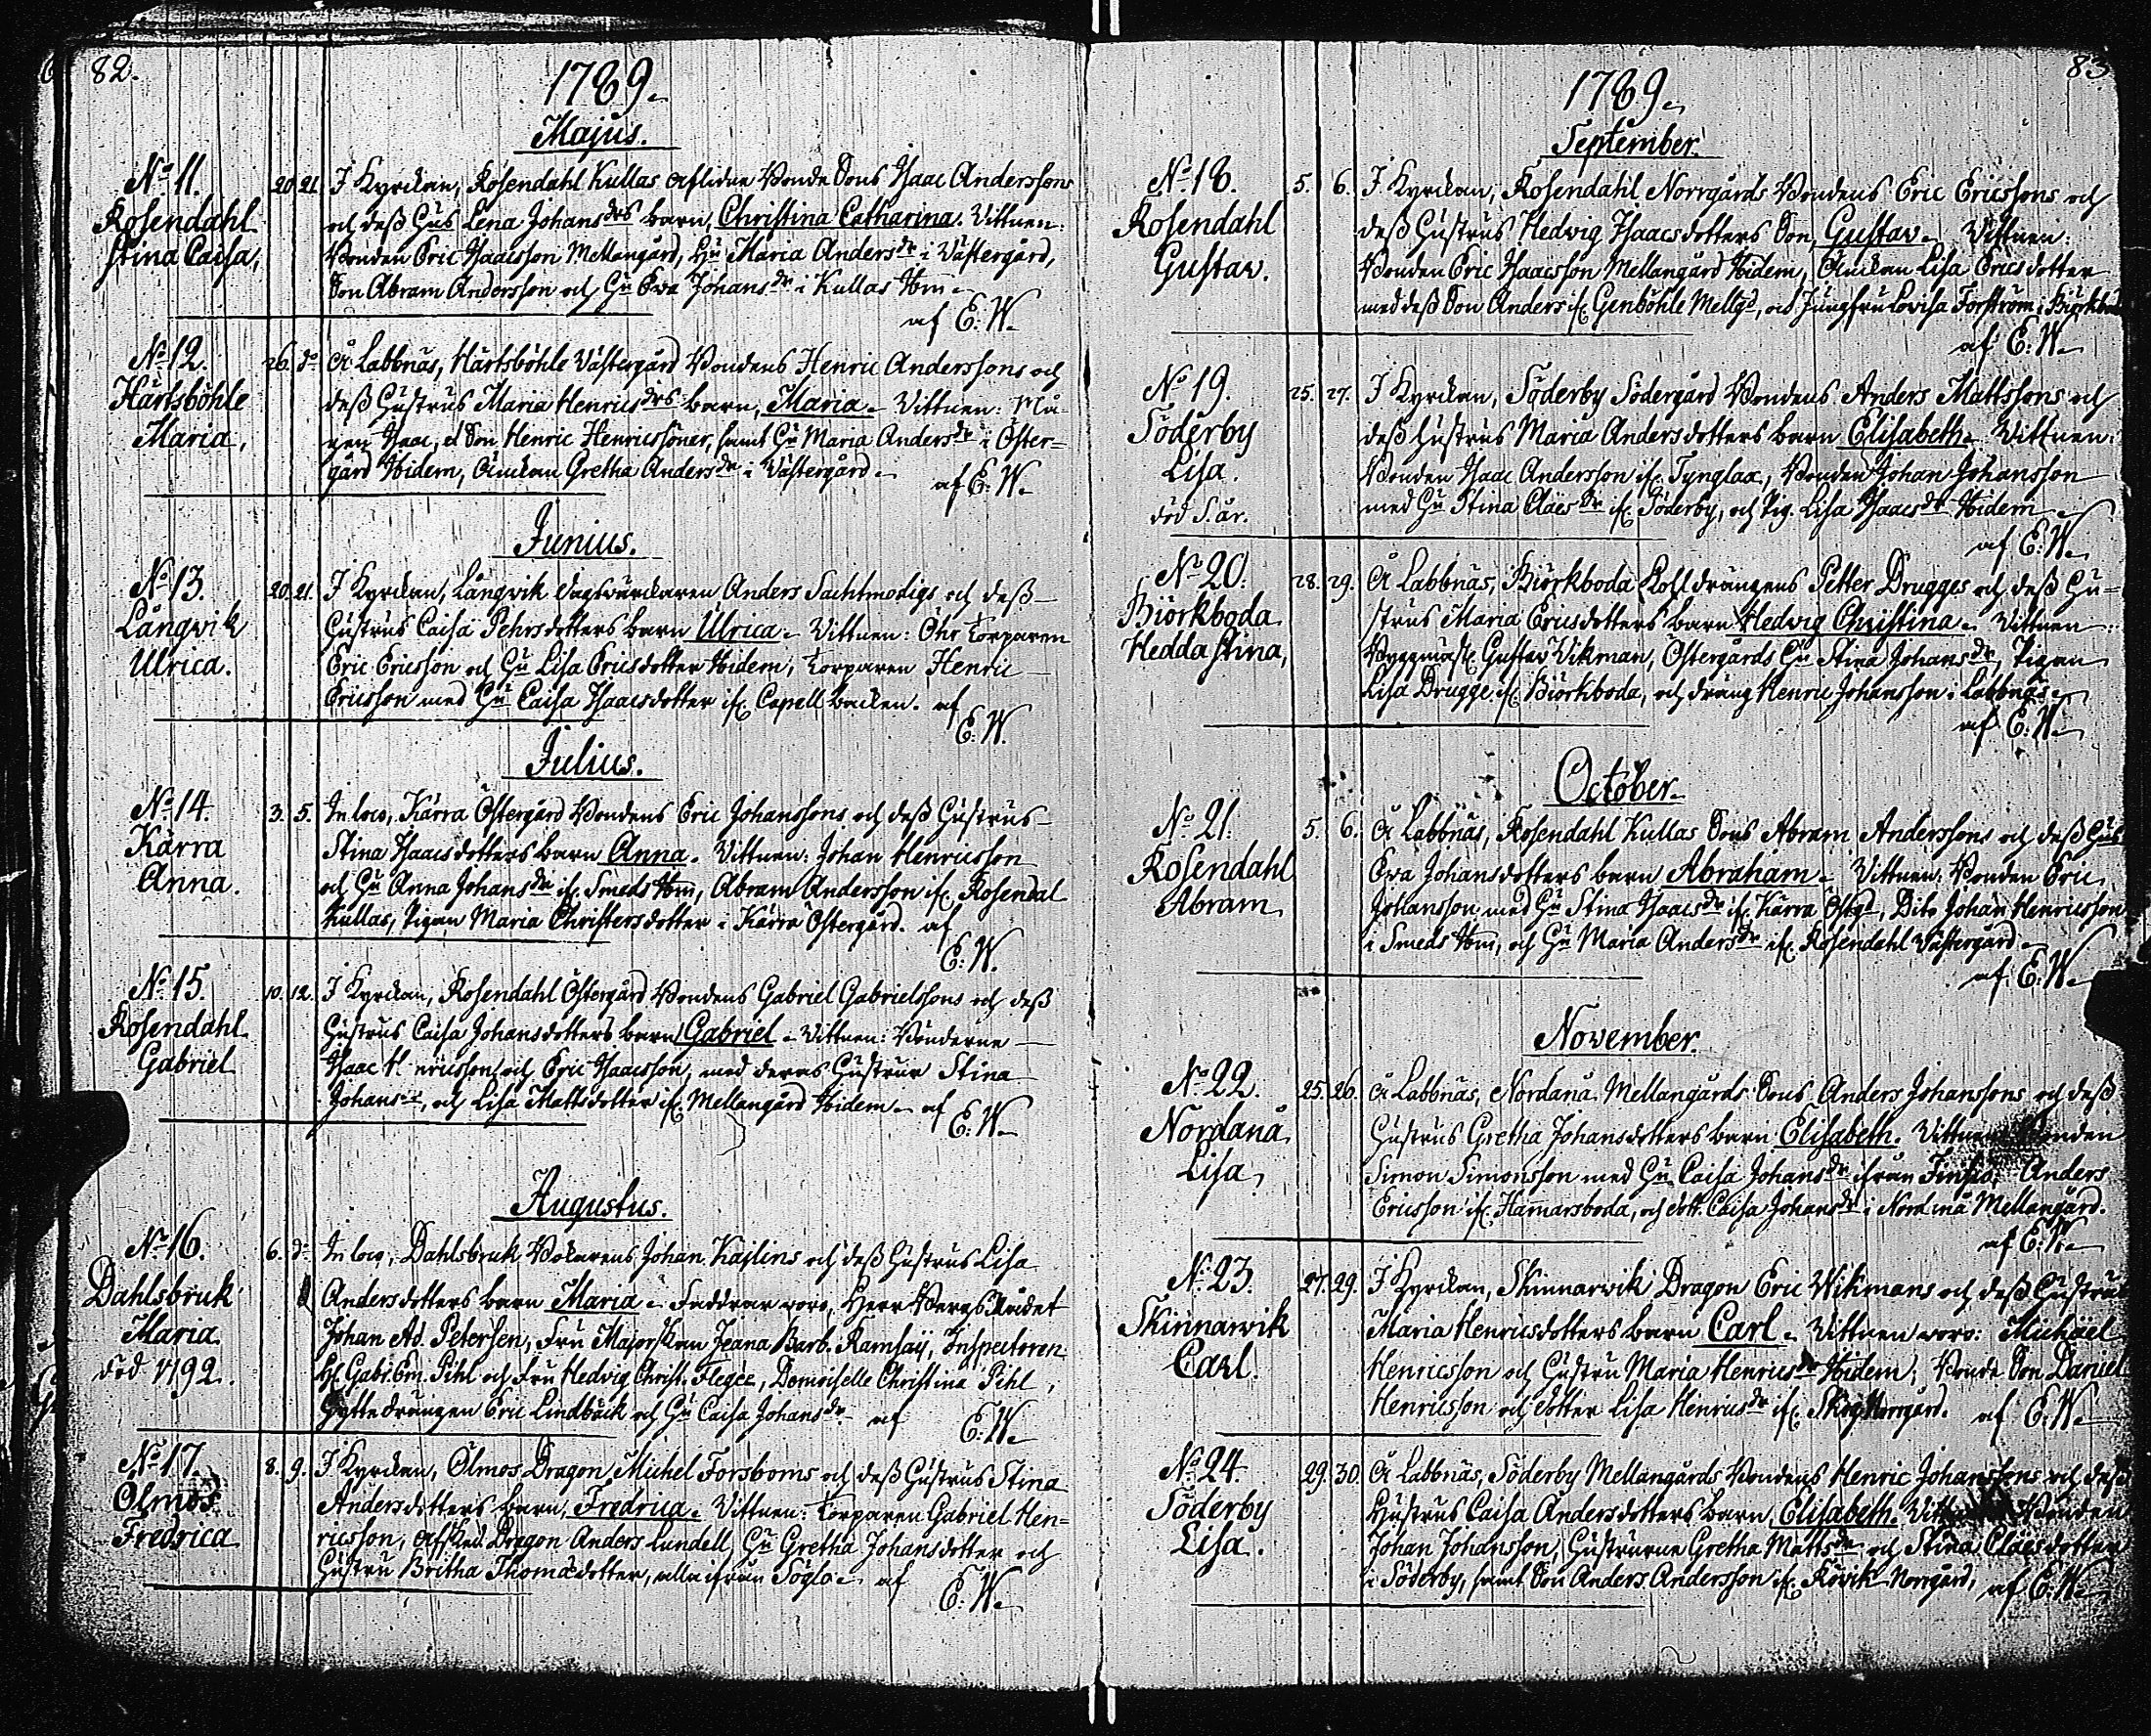 82.
1789.
Majus.
No 11.
Rosendahl
Stina Caisa,
20. 21. I Kyrckan, Rosendahl Kullas aflidne Bonde Sons Isaac Anderssons
och deß Hus Lena Johansdrs barn, Christina Catharina. Vittnen:
Bonden Eric Isaacsson Mellangård, Hu Maria Andersdr i Västergård,
Son Abram Andersson och Hu Eva Johansdr i Kullas ibm
af E: W.
No 12.
Härtsböhle
Maria,
26. do Å Labbnäs, Härtsböhle Västergård Bondens Henric Anderssons och
deß Hustrus Maria Henricsdrs barn, Maria. Vittnen: Må-
gen Isaac, et Son Henric Henricssöner, samt Hu Maria Andersdr i Öster-
gård Ibidem, Änckan Gretha Andersdr i Västergård.
af E: W.
Junius.
No 13.
Långvik
Ulrica.
20. 21. I Kyrckan, Långvik Dagsvärckaren Anders Sachtmodigs och deß
Hustrus Caisa Pehrsdotters barn Ulrica. Vittnen: Öhr Torparen
Eric Ericsson och Hu Lisa Ericsdotter Ibidem, Torparen Henric
Ericsson med Hu Caisa Isaacsdotter if. Capell backen. af
E: W.
Julius.
No 14.
Kärra
Anna.
3. 5. In loco, Kärra Östergård Bondens Eric Johanssons och deß Hustrus
Stina Isaacsdotters barn Anna. Vittnen: Johan Henricsson
och Hu Anna Johansdr if. Smeds ibm, Abram Andersson if. Rosendal
Kullas, Pigan Maria Christersdotter i Kärra Östergård. af
E: W.
No 15.
Rosendahl
Gabriel
10. 12. I Kyrckan, Rosendahl Östergård Bondens Gabriel Gabrielssons och deß
Hustrus Caisa Johansdotters barn Gabriel. Vittnen: Bönderne
Isaac H nricsson och Eric Isaacsson, med deras Hustrur Stina
Johansdr, och Lisa Mattsdotter if. Mellangård Ibidem. af
E: W.
Augustus.
No 16.
Dahlsbruk
Maria
död 1792.
6. do In loco, Dahlsbruk Bokarens Johan Kajlins och deß Hustrus Lisa
Andersdotters barn Maria. Faddrar voro, Herr Bergs Rådet
Johan Ad. Petersen, Fru Majorskan Jeana Barb. Ramsaÿ, Inspectoren
Hr Gabr. Em. Pihl och Fru Hedvig Christ. Flegee, Demoiselle Christina Pihl,
Hyttedrängen Eric Lindbäck och Hu Caisa Johansdr af
E: W.
No 17.
Ölmos
Fredrica
8. 9. I Kyrckan, Ölmos Dragon Michel Forsboms och deß Hustrus Stina
Andersdotters barn, Fredrica. Vittnen: Torparen Gabriel Hen-
ricsson, Afsked Dragon Anders Lundell, Hu Gretha Johansdotter och
Hustru Britha Thomædotter, alla ifrån Söglo. af
E: W.
83
1789.
September.
No 18.
Rosendahl
Gustav.
5. 6. I Kyrckan, Rosendahl Norrgårds Bondens Eric Ericssons och
deß Hustrus Hedvig Isaacsdotters Son, Gustav. Vittnen:
Bonden Eric Isaacsson Mellangård Ibidem, Änckan Lisa Ericsdotter
med deß Son Anders if. Genböhle Mellgd, och Jungfru Lovisa Forström i Biörkboda
af E: W.
No 19.
Söderby
Lisa.
död S. år.
25. 27. I Kyrckan, Söderby Södergård Bondens Anders Mattssons och
deß Hustrus Maria Andersdotters barn Elisabeth. Vittnen:
Bonden Isaac Andersson if. Tynglax, Bonden Johan Johansson
med Hu Stina Claësdr if. Söderby, och Pig. Lisa Isaacsdr Ibidem
af E: W.
No 20.
Biörkboda
Hedda Stina,
28. 29. Å Labbnäs, Biörkboda Kohldrängens Petter Drugges och deß Hu-
strus Maria Ericsdotters barn Hedvig Christina. Vittnen:
Byggmäst. Gustav Wikman, Östergårds Hu Stina Johansdr, Pigan
Lisa Drugge if. Biörkboda, och dräng Henric Johansson i Labbnäs.
af E: W.
October.
No 21.
Rosendahl
Abram
5. 6. Å Labbnäs, Rosendahl Kullas Sons Abram Anderssons och deß Hus
Eva Johansdotters barn Abraham. Vittnen: Bonden Eric
Johansson med Hu Stina Isaacsdr if. Kärra Östgd, Dito Johan Henricsson
i Smeds ibm, och Hu Maria Andersdr if. Rosendahl Västergård.
af E: W.
November.
No 22.
Nordanå
Lisa
25. 26. Å Labbnäs, Nordanå Mellangårds Sons Anders Johanssons och deß
Hustrus Gretha Johansdotters barn Elisabeth. Vittnen Bonden
Simon Simonsson med Hu Caisa Johansdr ifrån Finsjö, Anders
Ericsson if. Hamarsboda, och dott. Caisa Johansdr i Nordanå Mellangård.
af E: W.
No 23.
Skinnarwik
Carl.
27. 29. I Kyrckan, Skinnarwik Dragon Eric Wikmans och deß Hustrus
Maria Henricsdotters barn Carl. Vittnen voro: Michael
Henricsson och Hustru Maria Henricsdr Ibidem, Bonde Son Daniel
Henricsson och dotter Lisa Henricsdr if. Skog Norrgård. af E: W.
No 24.
Söderby
Lisa.
29. 30. Å Labbnäs, Söderby Mellangårds Bondens Henric Johanssons och deß
Hustrus Caisa Andersdotters barn, Elisabeth. Bonden
Johan Johansson, Hustrurne Gretha Mattsdr och Stina Claësdotter
i Söderby, samt Son Anders Andersson if. Rövik Norrgård, af E: W.